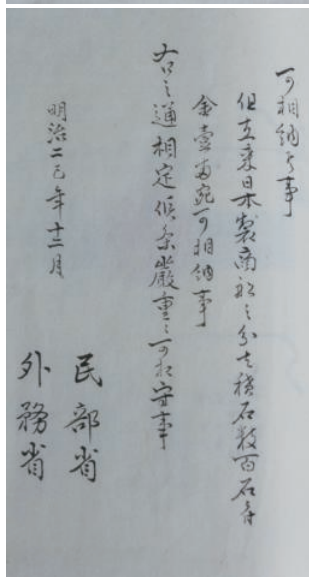 可相納事
但在来日本製商船之分者積石数百石ニ付
金壹両宛可相納事
右之通相定候条厳重ニ可相守事
明治二巳年十二月
民部省
外務省